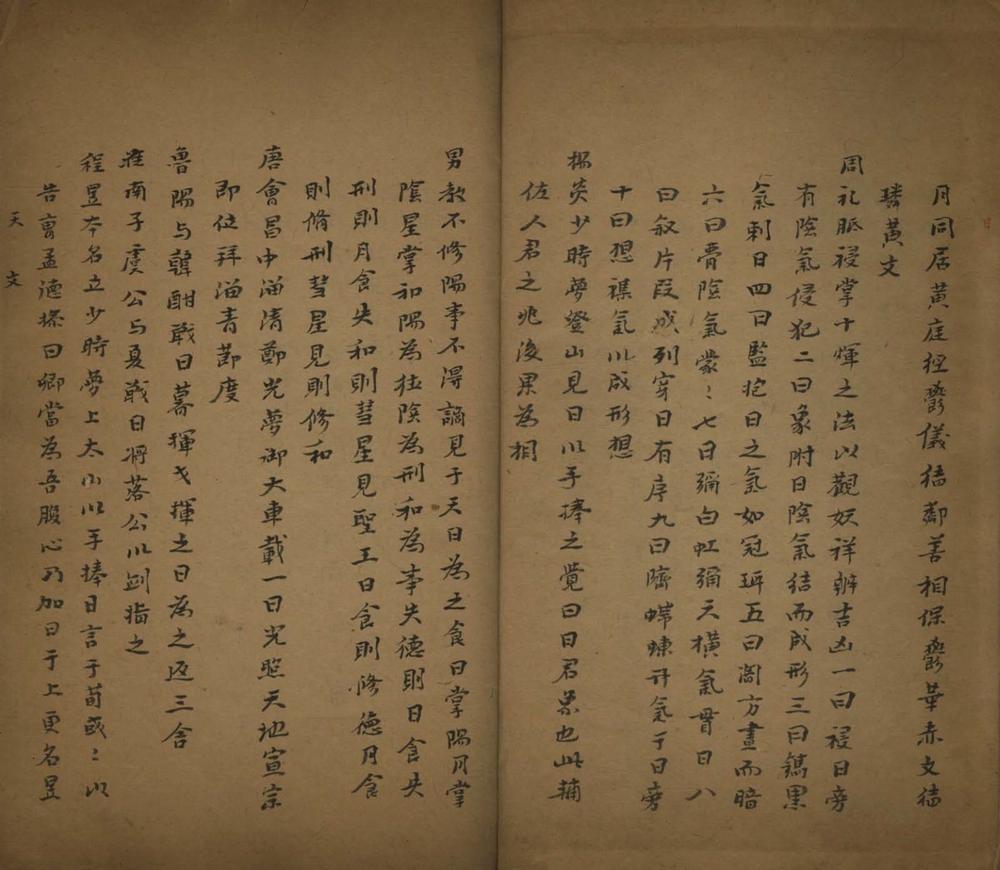 月同居黄庭経欝儀結鄰善相保欝華赤文結
璘黄文
周礼眡祲掌十煇之法以觀妖祥辨吉凶一曰祲日旁
有陰氣侵犯二曰象附日陰氣结而成形三曰鐫黒
氣刺日四曰監抱日之氣如冠珥五曰闇方晝而暗
六曰瞢陰氣蒙〻七曰彌白虹彌天横氣貫日八
曰叙片段成列穿日有序九曰隮蝃蝀升氣于日旁
十曰想襍氣以成形想
楊炎少時夢登山見日以手捧之覺曰日君象也此輔
佐人君之兆後果為相
男教不修陽事不淂謫見于天日為之食日掌陽月掌
陰星掌和陽為徳陰為刑和為事失德則日食失
刑則月食失和則彗星見聖王日食則修德月食
則脩刑彗星見則修和
唐會昌中淄清鄭光夢御大車載一日光照天地宣宗
即位拜淄青節度
魯陽与韓酣戰日暮揮戈揮之日為之返三舎
淮南子虞公与夏戰日将落公以劍指之
程昱夲名立少時夢上太山以手捧日言于荀彧〻以
告曹孟德操曰卿當為吾腹心乃加日于上更名昱
天文